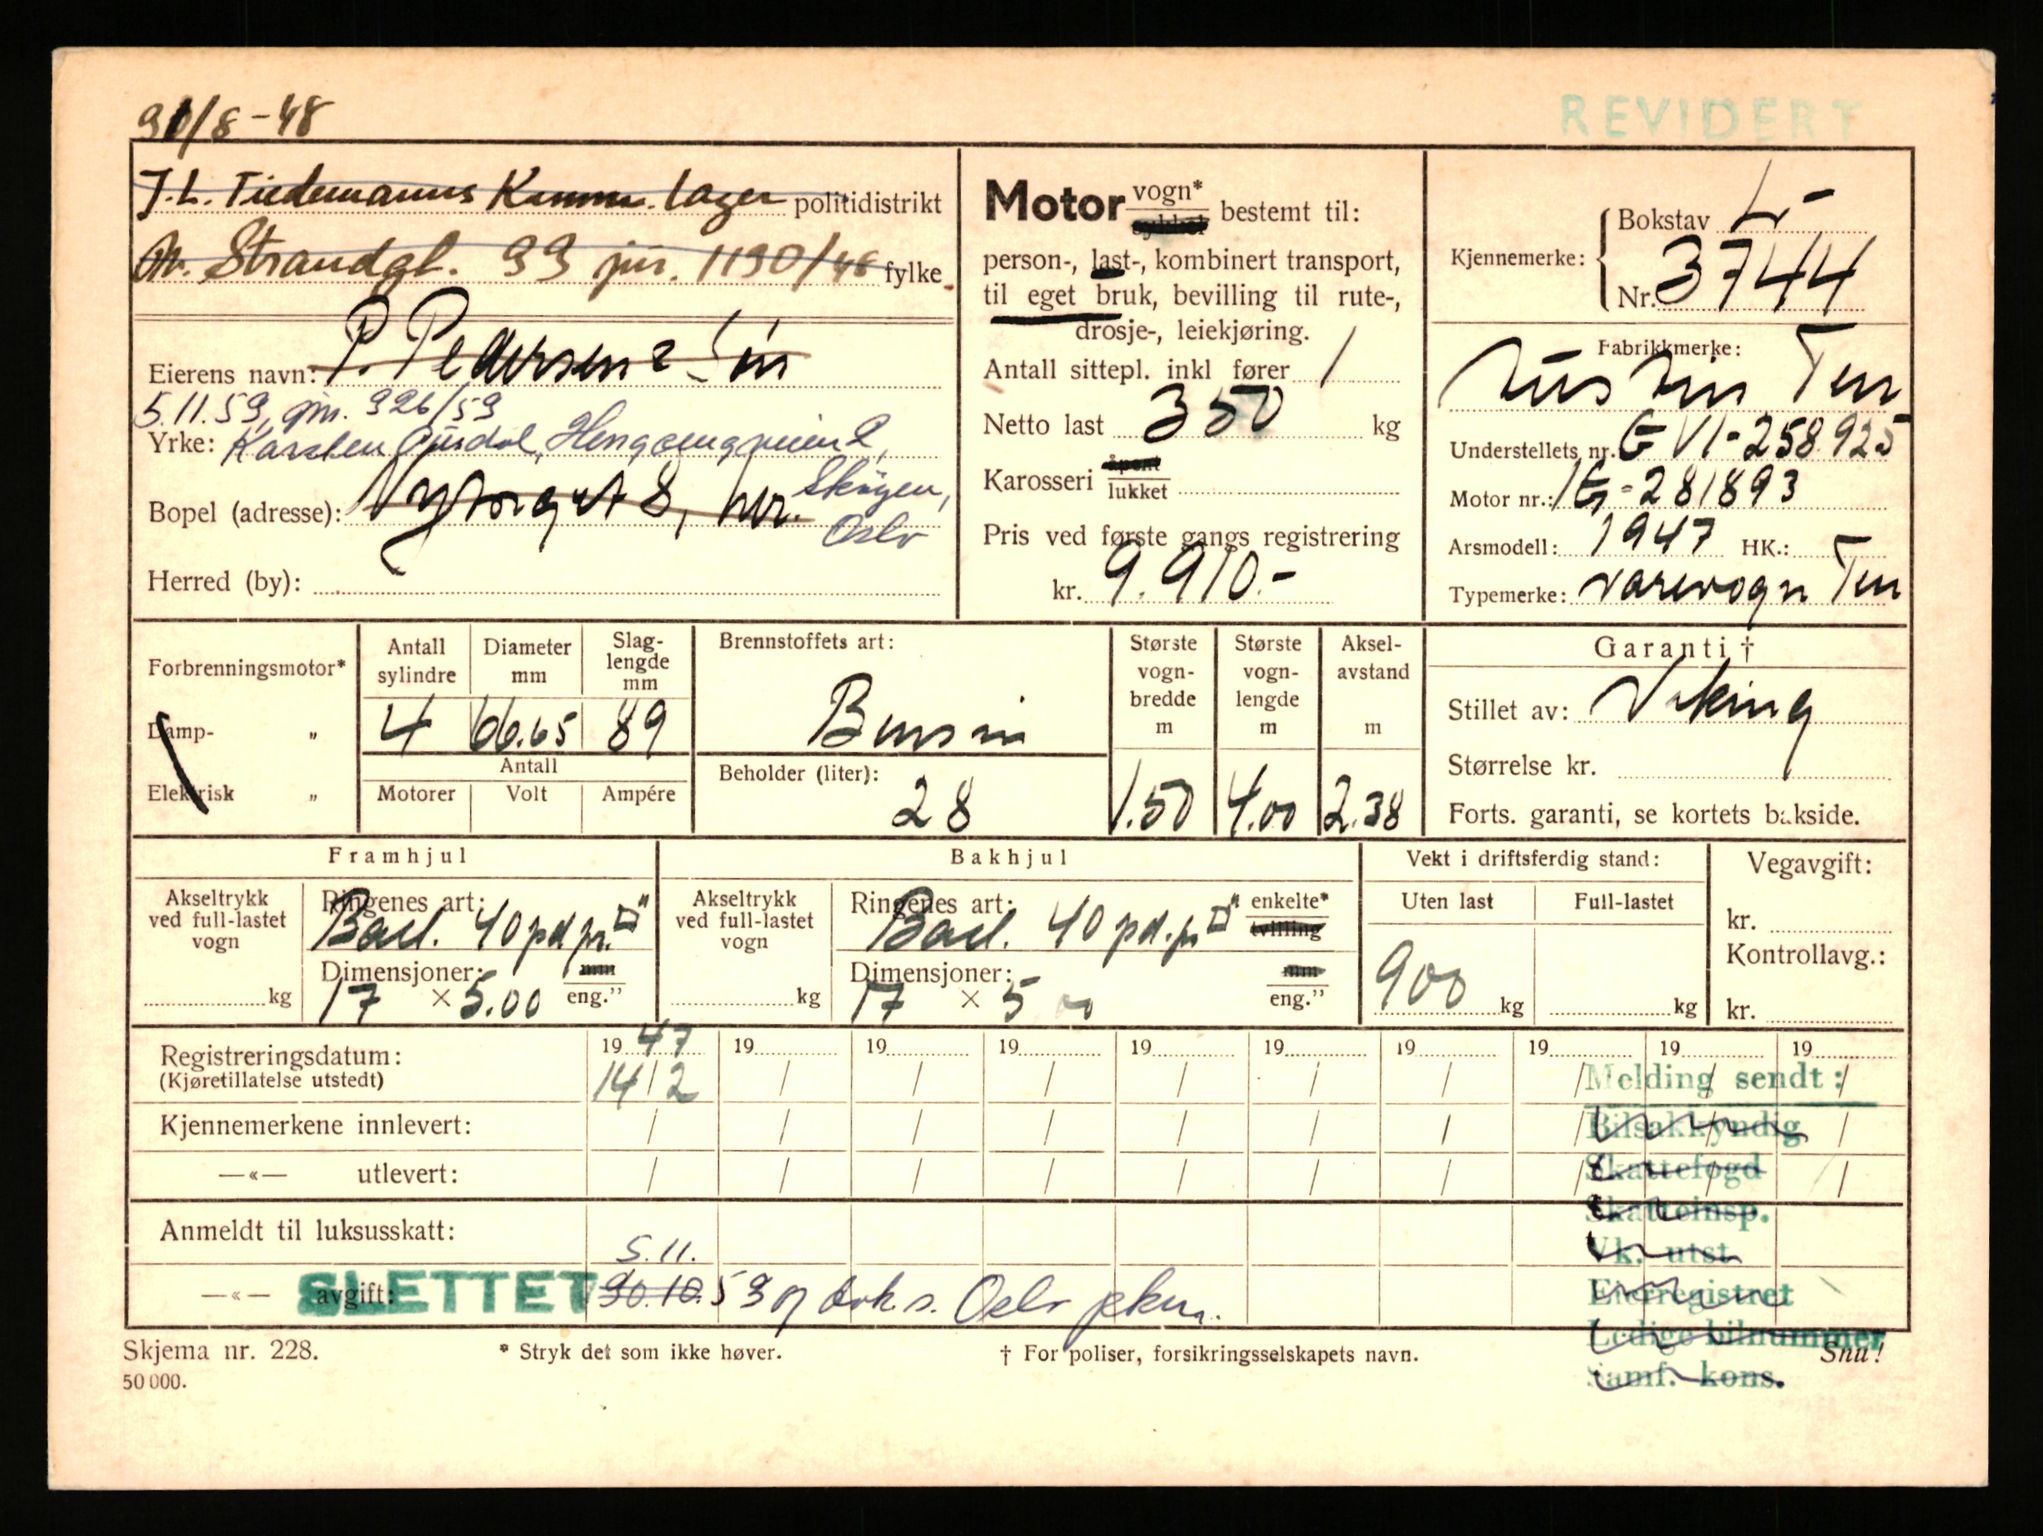 31/8-48
REVIDERT
J.L. Tiedemanns Komm. lager politidistrikt
Strandgt. 33 jnr. 1130/48 fylke
Eierens navn: P. Pedersen & Søn
5.11.53, jnr. 326/53
Yrke: Karsten
Bopel (adresse): Nytorget 8, Skøyen,
Oslo
Herred (by):
Motor vogn*
sykkel bestemt til:
person-, last-, kombinert transport,
til eget bruk, bevilling til rute-,
drosje-, leiekjøring.
Antall sittepl. inkl fører 1
Netto last 350 kg
Karosseri åpent
lukket
Pris ved første gangs registrering
kr. 9.910.-
Kjennemerke: Bokstav L-
Nr. 3744
Fabrikkmerke:
Austin Ten
Understellets nr. G VI-258925
Motor nr.: 1G-281893
Arsmodell: 1947 HK.:
Typemerke: Varevogn Ten
Forbrenningsmotor*
Damp- „
Elektrisk „
Antall sylindre Diameter mm Slag-lengde mm
4 66.65 89
Antall
Motorer Volt Ampére
Brennstoffets art:
Bensin
Beholder (liter):
28
Største vogn-bredde m
1.50
Største vogn-lengde m
4.00
Aksel-avstand m
2.38
Garanti †
Stillet av: Viking
Størrelse kr.
Forts. garanti, se kortets bakside.
Framhjul
Akseltrykk ved full-lastet vogn
kg
Ringenes art:
Ball. 40 pd pr. □"
Dimensjoner: mm
17 × 5.00 eng."
Bakhjul
Akseltrykk ved full-lastet vogn
kg
Ringenes art: enkelte*
Ball. 40 pd. pr □" tvilling
Dimensjoner: mm
17 × 5.00 eng."
Vekt i driftsferdig stand:
Uten last Full-lastet
900 kg kg
Vegavgift:
kr.
Kontrollavg.:
kr.
Registreringsdatum: 19 47 19 19 19 19 19 19 19 19 19
(Kjøretillatelse utstedt) 14/2 / / / / / / / / /
Kjennemerkene innlevert: / / / / / / / / / /
—«— utlevert: / / / / / / / / / /
Anmeldt til luksusskatt:
5.11.
—«— avgift: SLETTET 30.10.53 Oslo
Melding sendt:
Bilsakkyndig
Skattefogd
Skatteinsp.
Vk. utst.
Eierregistret
Ledige bilnummer
Samf. kons.
Skjema nr. 228. * Stryk det som ikke høver. † For poliser, forsikringsselskapets navn. Snu!
50 000.